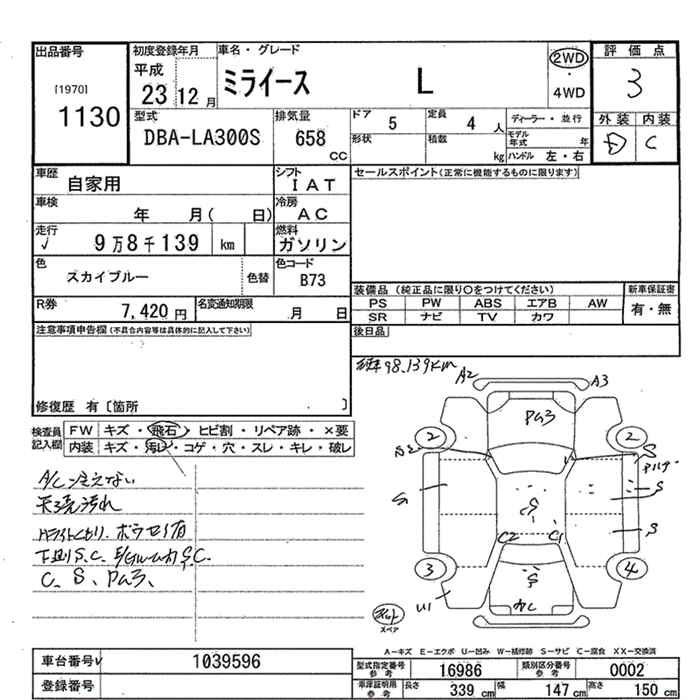 出品番号
[1970]
1130
初度登録年月
平成
23 12 月
車名・グレード
ミライース L
2WD
・
4WD
評価点
3
外装 内装
D C
型式
DBA-LA300S
排気量
658 CC
ドア 5
定員 4 人
ディーラー・並行
形状
積数 kg
モデル年式 年
ハンドル 左・右
車歴
自家用
シフト
IAT
セールスポイント(正常に機能するものに限ります)
車検
年 月( 日)
冷房
AC
走行
√ 9万8千139 km
燃料
ガソリン
色
スカイブルー
色替
色コード
B73
装備品 (純正品に限り○をつけてください)
新車保証書
PS PW ABS エアB AW
SR ナビ TV カワ
有・無
R券
7,420 円
名変通知期限
月 日
後日品
注意事項申告欄(不具合内容等は具体的に記入して下さい)
修復歴 有〔箇所 〕
98,139km
A2 A3
検査員記入欄
FW キズ・飛石・ヒビ割・リペア跡・×要
内装 キズ・汚レ・コゲ・穴・スレ・キレ・破レ
A/C冷えない
天張汚れ
下廻りS.C.
C、S、
2 2
S
S
S
S
C2 C1
S
3 4
スペア
A-キズ E-エクボ U-凹み W-補修跡 S-サビ C-腐食 XX-交換済
車台番号 1039596
登録番号
型式指定番号 参考 16986
類別区分番号 参考 0002
車庫証明用 参考 長さ 339 cm 幅 147 cm 高さ 150 cm